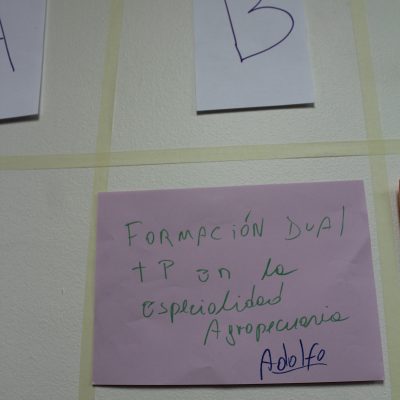 A
B
FORMACIÓN DUAL
TP en la
especialidad
Agropecuaria
Adolfo